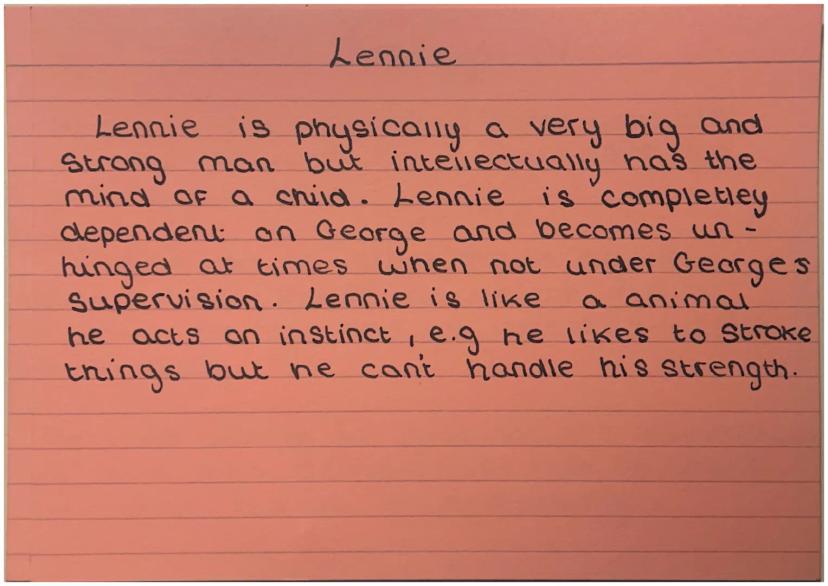 Lennie
Lennie is physically a very big and
strong man but intellectually has the
mind of a child. Lennie is completley
dependent on George and becomes un-
hinged at times when not under Georges
supervision. Lennie is like a animal
he acts on instinct, e.g he likes to stroke
things but he can't handle his strength.